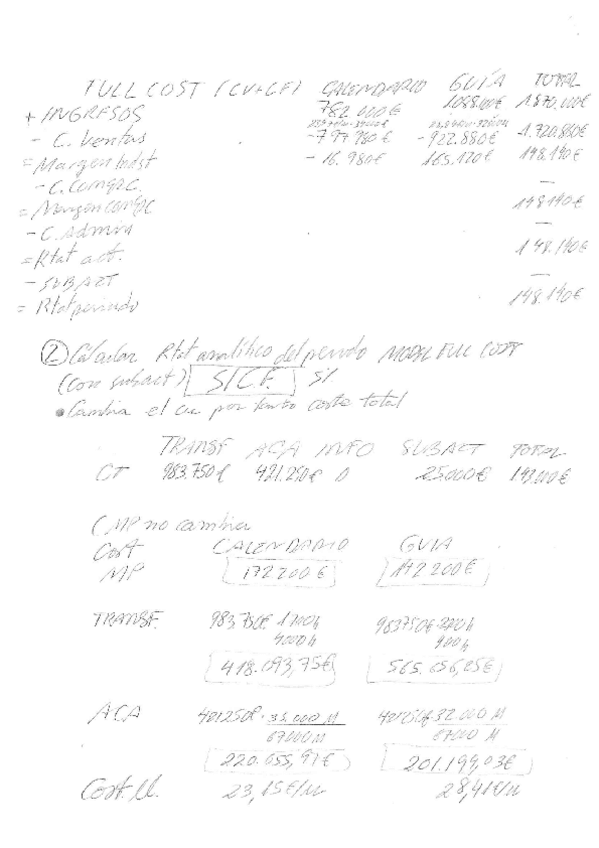 FULL COST (CV+CF) CALENDARIO GUÍA TOTAL
+ INGRESOS 782.000€ 1088.000€ 1.870.000€
- C. Ventas -797.980€ -922.880€ -1.720.860€
= Margen Indst - 16.980€ 165.120€ 148.140€
- C. Comerc. —
= Margen comerc 148.140€
- C. Admin —
= Rtat act. 148.140€
- SUBACT —
= Rtat periodo 148.140€
② Calcular Rtat analítico del periodo MODEL FULL COST
(con subact) SICF. SÍ
• Cambia el cv por tanto coste total
TRANSF ACA MTO SUBACT TOTAL
CT 983.750€ 421.250€ 0 25.000€
CMP no cambia
Cost CALENDARIO GUIA
MP 172.200€ 142.200€
TRANSF. 983.750€ · 1700h 983750€ · 2300h
4000h
418.093,75€ 565.656,25€
ACA 421250€ · 35.000 M 421250€ · 32.000 M
67000M 67000 M
220.055,97€ 201.194,03€
Cost.U. 23,15€/u 28,41€/u